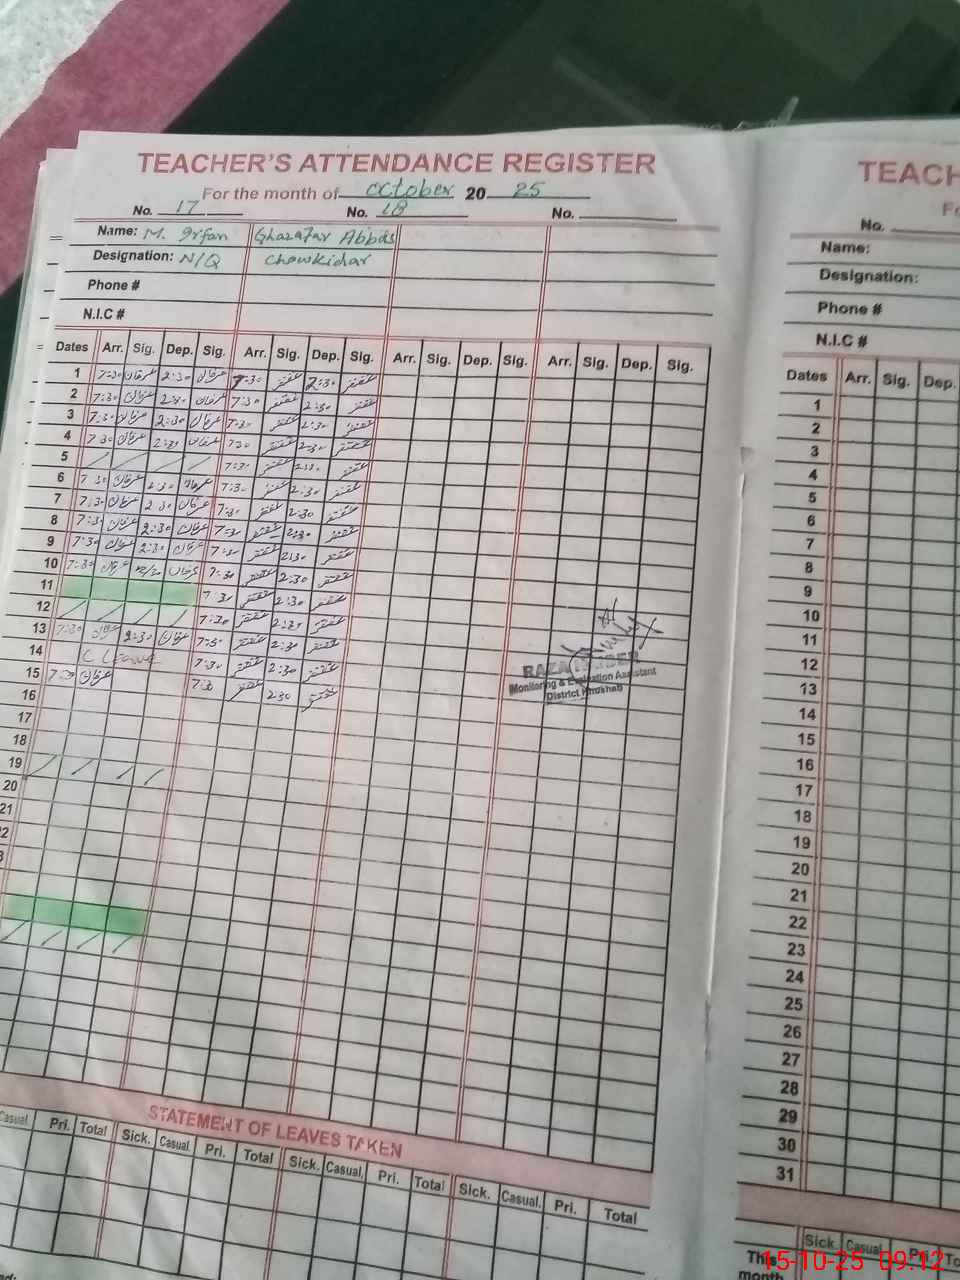 TEACHER'S ATTENDANCE REGISTER
For the month of October 20 25
No. 17 No. 18 No.
Name: M. Irfan Ghazafar Abbas
Designation: N/Q Chowkidar
Phone #
N.I.C #
Dates Arr. Sig. Dep. Sig. Arr. Sig. Dep. Sig. Arr. Sig. Dep. Sig. Arr. Sig. Dep. Sig.
1 7:30 عرفان 2:30 عرفان 7:30 غضنفر 2:30 غضنفر
2 7:30 عرفان 2:30 عرفان 7:30 غضنفر 2:30 غضنفر
3 7:30 عرفان 2:30 عرفان 7:30 غضنفر 2:30 غضنفر
4 7:30 عرفان 2:30 عرفان 7:30 غضنفر 2:30 غضنفر
5 7:30 غضنفر 2:30 غضنفر
6 7:30 عرفان 2:30 عرفان 7:30 غضنفر 2:30 غضنفر
7 7:30 عرفان 2:30 عرفان 7:30 غضنفر 2:30 غضنفر
8 7:30 عرفان 2:30 عرفان 7:30 غضنفر 2:30 غضنفر
9 7:30 عرفان 2:30 عرفان 7:30 غضنفر 2:30 غضنفر
10 7:30 عرفان عرفان 7:30 غضنفر 2:30 غضنفر
11 7:30 غضنفر 2:30 غضنفر
12 7:30 غضنفر 2:30 غضنفر
13 7:30 عرفان 2:30 عرفان 7:30 غضنفر 2:30 غضنفر
14 C Leave 7:30 غضنفر 2:30 غضنفر
15 7:30 عرفان 7:30 غضنفر 2:30 غضنفر
16
17
18
19
20
21
22
RAZA
Monitoring & Evaluation Assistant
District Khushab
STATEMENT OF LEAVES TAKEN
Casual Pri. Total Sick. Casual. Pri. Total Sick. Casual. Pri. Total Sick. Casual. Pri. Total
TEACH
No.
Name:
Designation:
Phone #
N.I.C #
Dates Arr. Sig. Dep.
1
2
3
4
5
6
7
8
9
10
11
12
13
14
15
16
17
18
19
20
21
22
23
24
25
26
27
28
29
30
31
Sick. Casual. Pri.
This
month
15-10-25 09:12